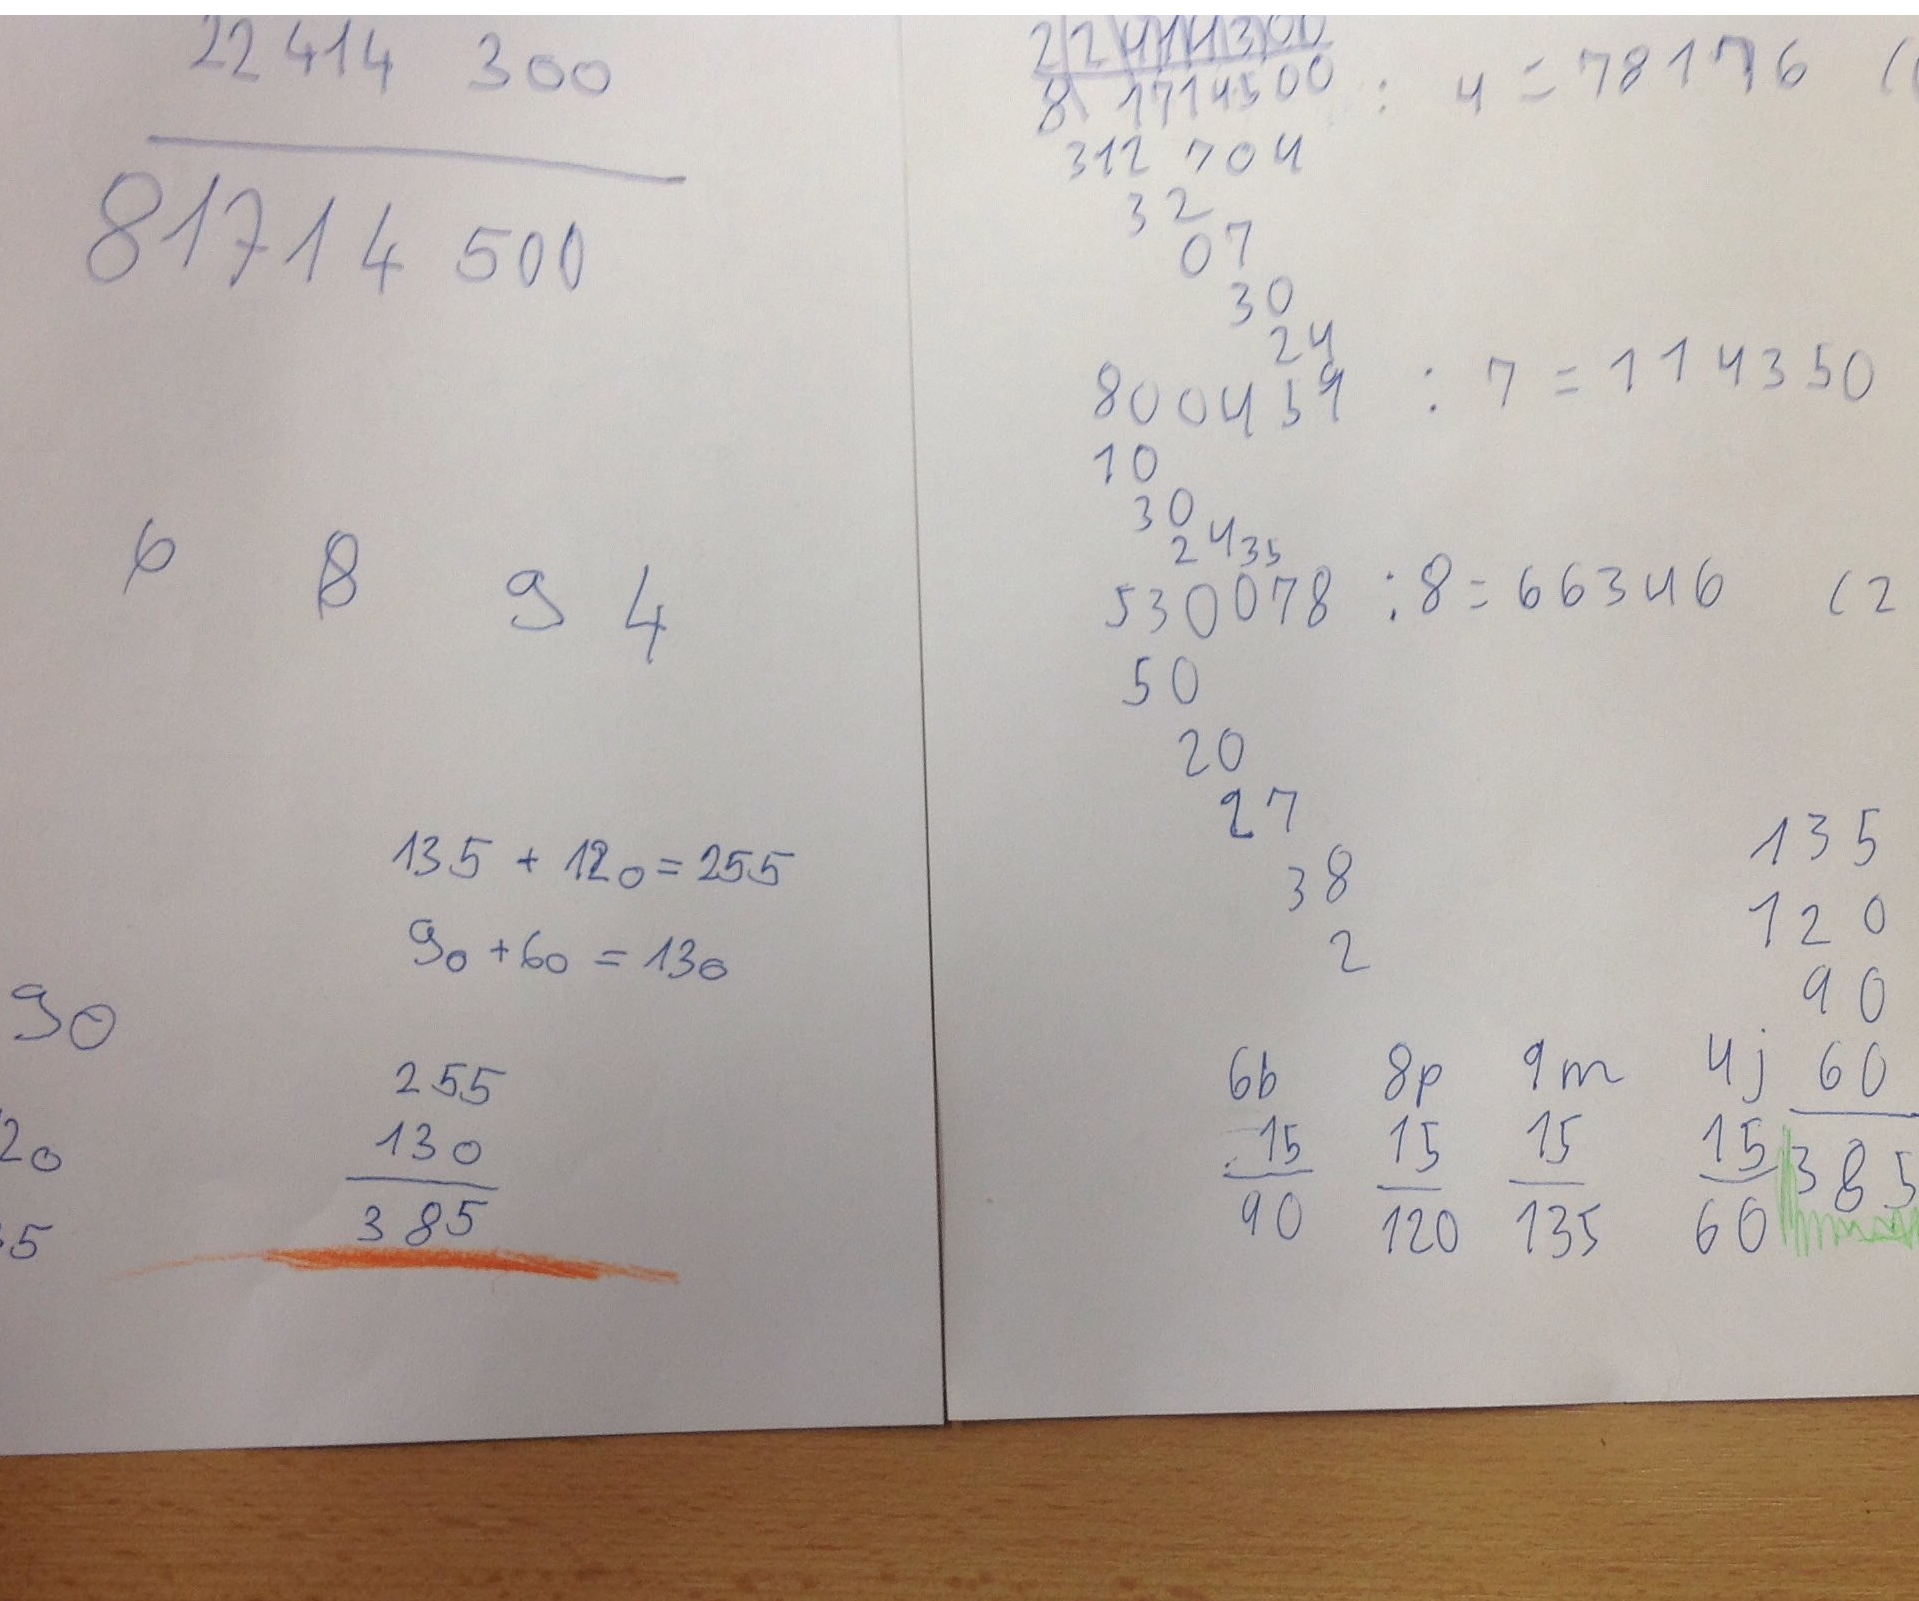 22 414 300
81714 500
6 8 9 4
135 + 120 = 255
90 + 60 = 130
90
255
20
130
385
5
22414300
81714500
312 704 : 4 = 78176 (
32
07
30
24
800459 : 7 = 114350
10
30
24
35
530078 : 8 = 66346 (2
50
20
27
38
2
135
120
90
60
385
6b 8p 9m 4j
. 15 15 15 15
90 120 135 60